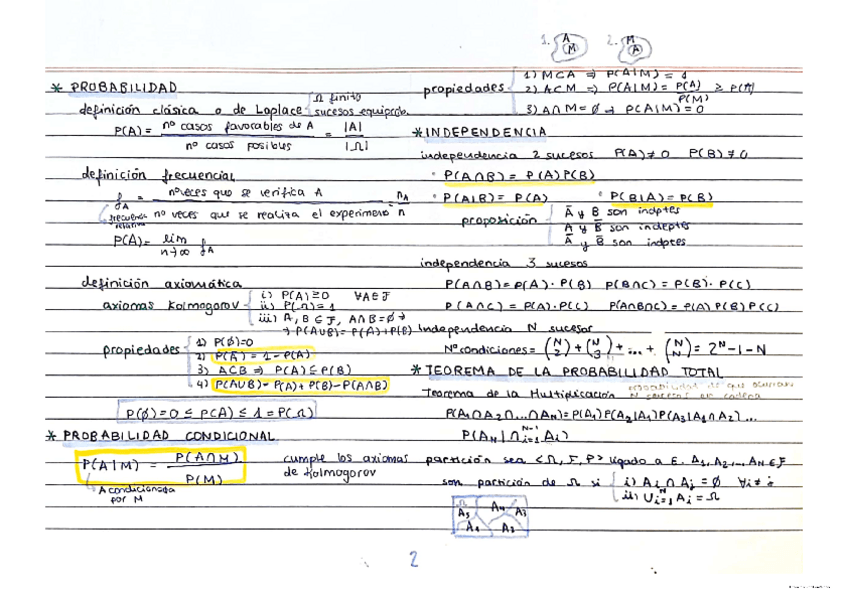 * PROBABILIDAD
definición clásica o de Laplace
Ω finito
sucesos equiprob.
P(A) = nº casos favorables de A / nº casos posibles = |A| / |Ω|
definición frecuencial
fA = nº veces que se verifica A / nº veces que se realiza el experimento = nA / n
frecuencia relativa
P(A) = lim n→∞ fA
definición axiomática
axiomas Kolmogorov
i) P(A) ≥ 0 ∀A∈F
ii) P(Ω) = 1
iii) A, B ∈ F, A∩B = ∅ →
→ P(A∪B) = P(A) + P(B)
propiedades
1) P(∅)=0
2) P(Ā) = 1 - P(A)
3) A⊂B ⇒ P(A) ≤ P(B)
4) P(A∪B) = P(A) + P(B) - P(A∩B)
P(∅) = 0 ≤ P(A) ≤ 1 = P(Ω)
* PROBABILIDAD CONDICIONAL
P(A|M) = P(A∩M) / P(M)
A condicionada
por M
cumple los axiomas
de Kolmogorov
1. A M
2. M A
propiedades
1) M⊂A ⇒ P(A|M) = 1
2) A⊂M ⇒ P(A|M) = P(A) / P(M) ≥ P(A)
3) A∩M = ∅ → P(A|M) = 0
* INDEPENDENCIA
independencia 2 sucesos P(A)≠0 P(B)≠0
• P(A∩B) = P(A)P(B)
• P(A|B) = P(A) • P(B|A) = P(B)
proposición
Ā y B son indptes
A y B̄ son indeptes
Ā y B̄ son indptes
independencia 3 sucesos
P(A∩B) = P(A) · P(B) P(B∩C) = P(B) · P(C)
P(A∩C) = P(A) · P(C) P(A∩B∩C) = P(A)P(B)P(C)
Independencia N sucesos
Nº condiciones = (N 2) + (N 3) + ... + (N N) = 2^N - 1 - N
* TEOREMA DE LA PROBABILIDAD TOTAL
Teorema de la Multiplicación probabilidad de que ocurran
N sucesos en cadena
P(A₁∩A₂∩...∩AN) = P(A₁)P(A₂|A₁)P(A₃|A₁∩A₂) ...
P(AN|∩ᵢ₌₁^N-1 Aᵢ)
partición sea <Ω, F, P> ligado a E. A₁, A₂, ..., AN ∈ F
son partición de Ω si
i) Aᵢ∩Aⱼ = ∅ ∀i≠j
ii) ∪ᵢ₌₁^N Aᵢ = Ω
Ω A₅ A₄ A₃
A₁ A₂
2